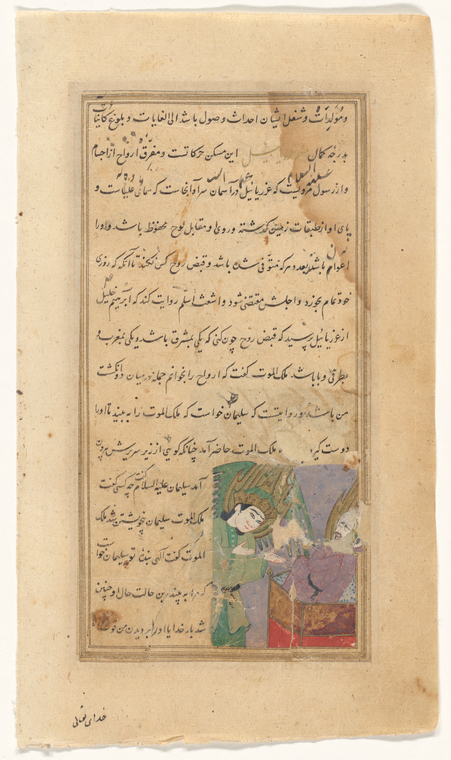 ومولدات وشغل ایشان احداث وصول باشد الی الغایات وبلوغ کاینات
بدرجه کمال این مسکن حرکاتست ومفرق ارواح از اجسام
واز رسول مرویست که عزرائیل در آسمان است که سمای علیاست و
پای او از طبقات زمین گذشته وروی و مقابل لوح محفوظ باشد واورا
اعوان باشد بعدد هرکه متوفی شده باشد وقبض روح کس نکند تا آنکه که روزی
خود تمام بخورد واجلش منقضی شود واشعث اسلم روایت کند که ابرهیم خلیل
از عزرائیل پرسید که قبض روح چون کنی که یکی بمشرق باشد ویکی بمغرب و
بطرفی وبا باشد ملک الموت گفت که ارواح را بخوانم جمله در میان دو انگشت
من باشند وروایتست که سلیمان خواست که ملک الموت را به بیند تا اورا
دوست گیرد ملک الموت حاضر آمد چنانکه کویی از زیر سریرش بیرون
آمد سلیمان علیه السلام گفت چه کسی گفت
ملک الموت سلیمان خویشتن شد ملک
الموت گفت الهی بنده تو سلیمان خواست
که مرا به بیند این حالت حال او چنین
شد بار خدایا اورا بر دیدن من قوت
خدای تعالی